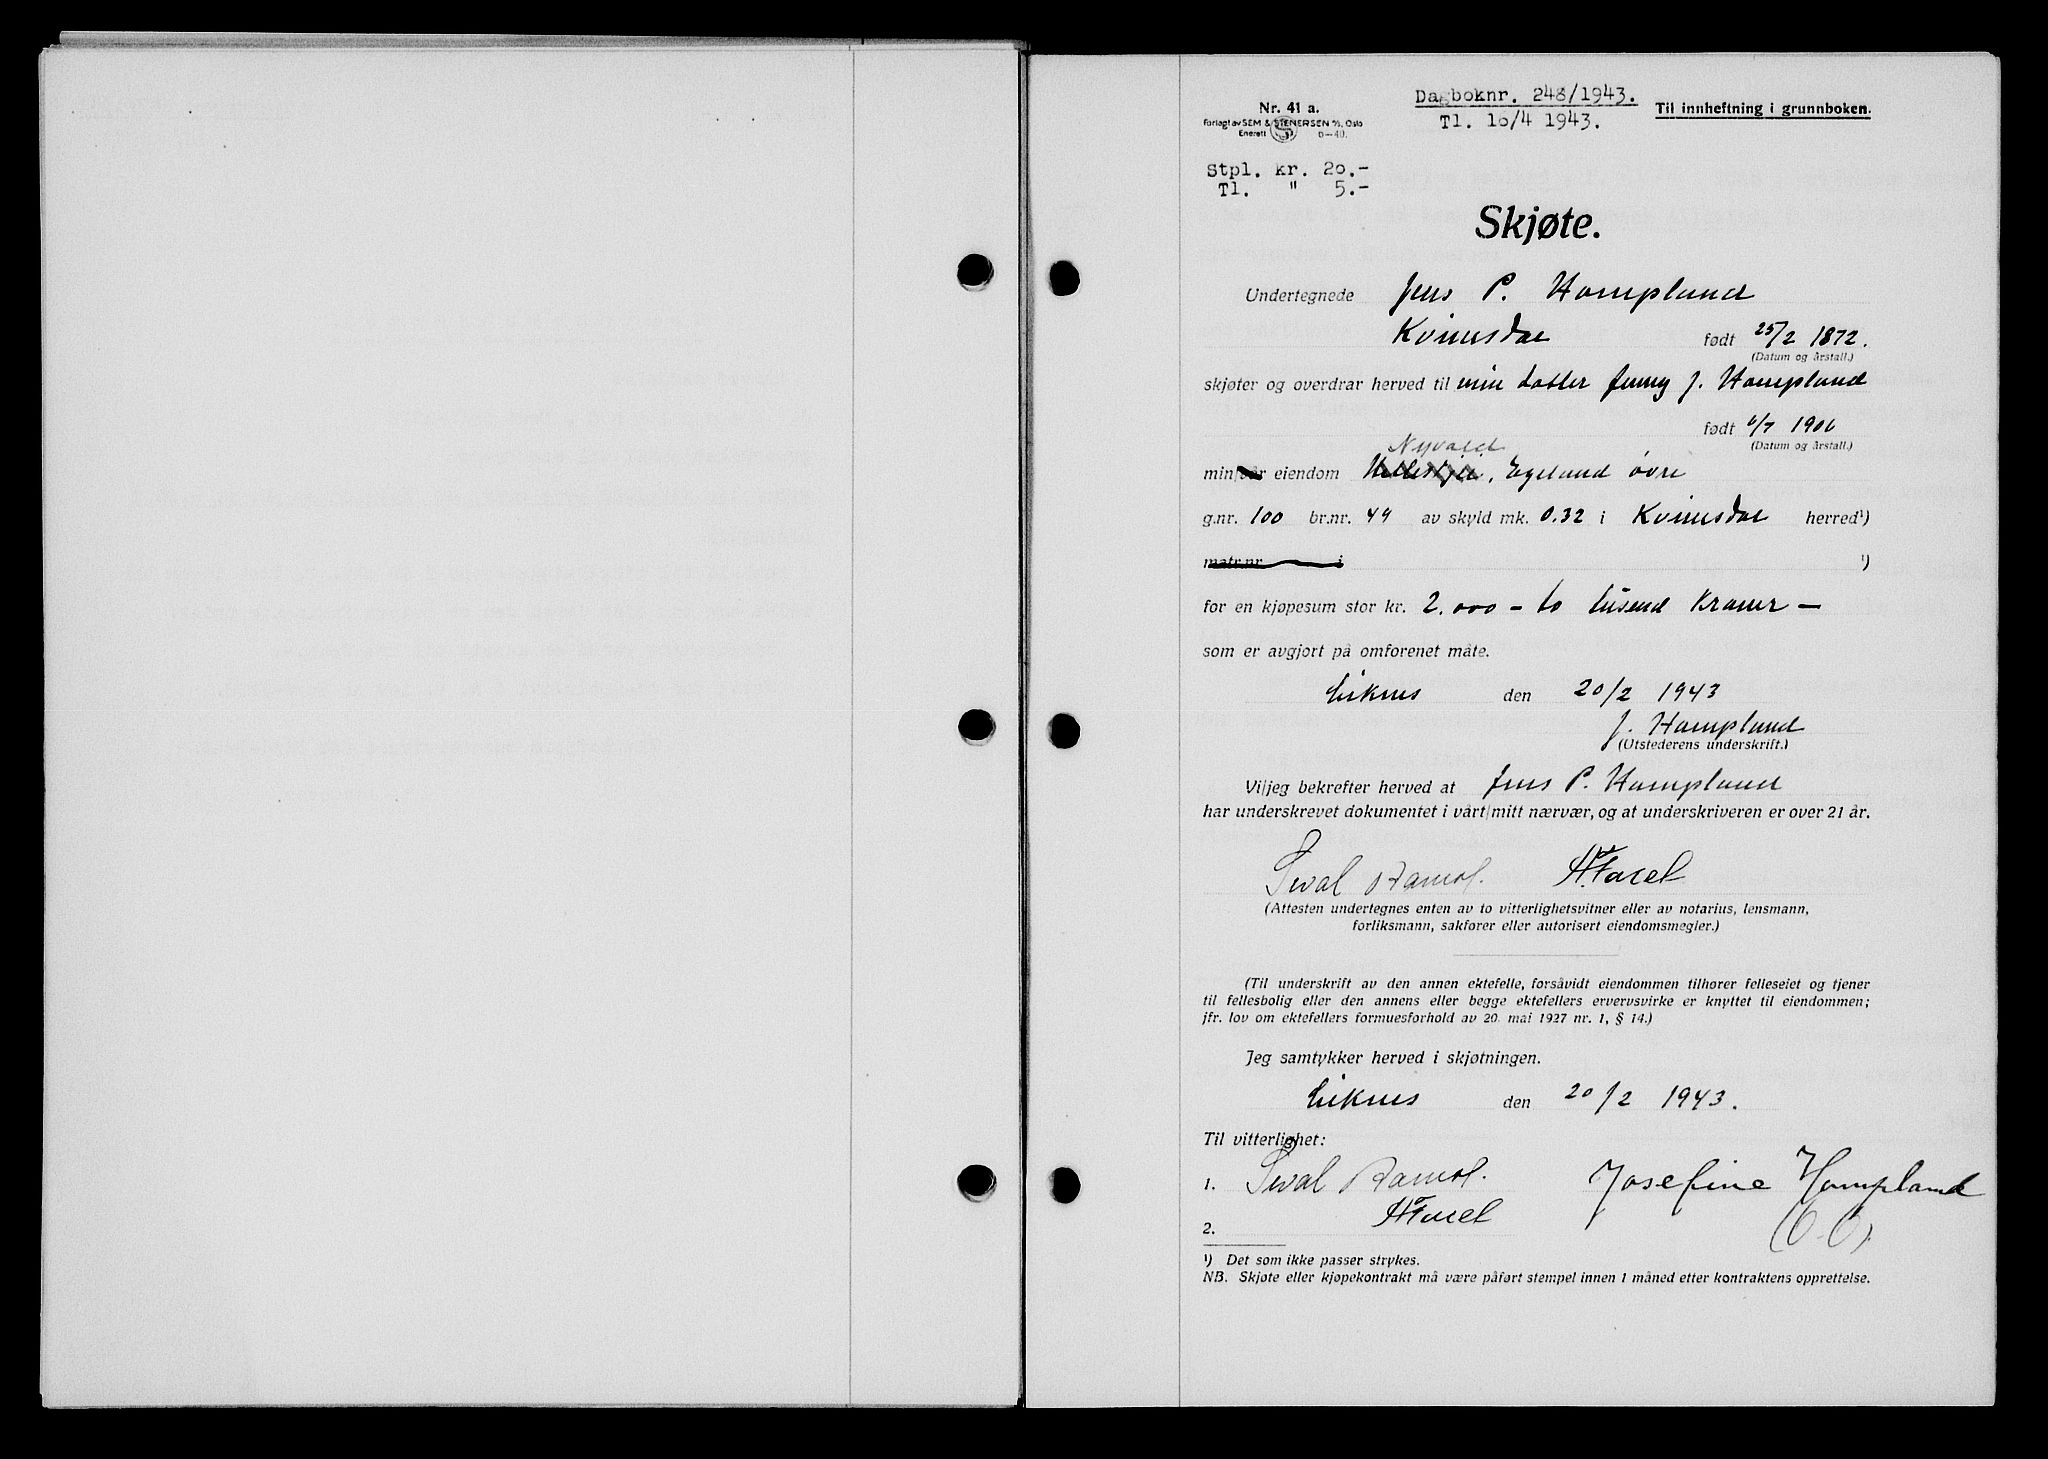 Nr. 41 a.
Forlagt av SEM & STENERSEN A/S, Oslo
Enerett 6-40.
Dagboknr. 248/1943.
Tl. 16/4 1943.
Til innheftning i grunnboken.
Stpl. kr. 20.-
Tl. " 5.-
Skjøte.
Undertegnede Jens P. Hompland
Kvinesdal født 25/2 1872.
(Datum og årstall.)
skjøter og overdrar herved til min datter Jenny J. Hompland
født 6/7 1906
(Datum og årstall.)
Nyvold
min/vår eiendom , Egeland øvre
g.nr. 100 br.nr. 49 av skyld mk. 0.32 i Kvinesdal herred¹)
matr.nr. i ¹)
for en kjøpesum stor kr. 2.000 - to tusend kroner -
som er avgjort på omforenet måte.
Liknes den 20/2 1943
J. Hompland
(Utstederens underskrift.)
Vi/jeg bekrefter herved at Jens P. Hompland
har underskrevet dokumentet i vårt/mitt nærvær, og at underskriveren er over 21 år.
(Attesten undertegnes enten av to vitterlighetsvitner eller av notarius, lensmann,
forliksmann, sakfører eller autorisert eiendomsmegler.)
(Til underskrift av den annen ektefelle, forsåvidt eiendommen tilhører felleseiet og tjener
til fellesbolig eller den annens eller begge ektefellers ervervsvirke er knyttet til eiendommen;
jfr. lov om ektefellers formuesforhold av 20. mai 1927 nr. 1, § 14.)
Jeg samtykker herved i skjøtningen.
Liknes den 20/2 1943.
Til vitterlighet:
1. Josefine Hompland
2.
¹) Det som ikke passer strykes.
NB. Skjøte eller kjøpekontrakt må være påført stempel innen 1 måned etter kontraktens opprettelse.